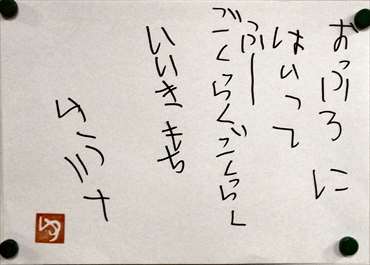 おふろに
はいって
ふー
ごくらくごくらく
いいきもち
ゆ